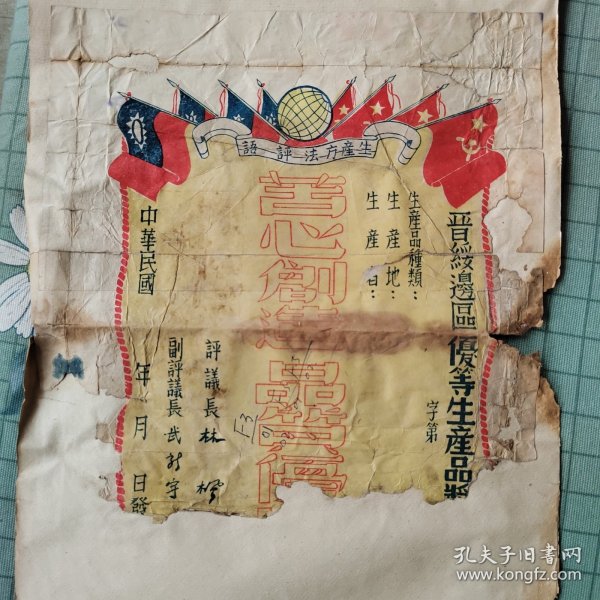 生產方法評語
晉綏邊區優等生產品獎
字第
生產品種類：
生產地：
生產者：
善心創造
品質優
評議長林楓
副評議長武新宇
中華民國
年月日發
孔夫子旧书网
www.kongfz.com